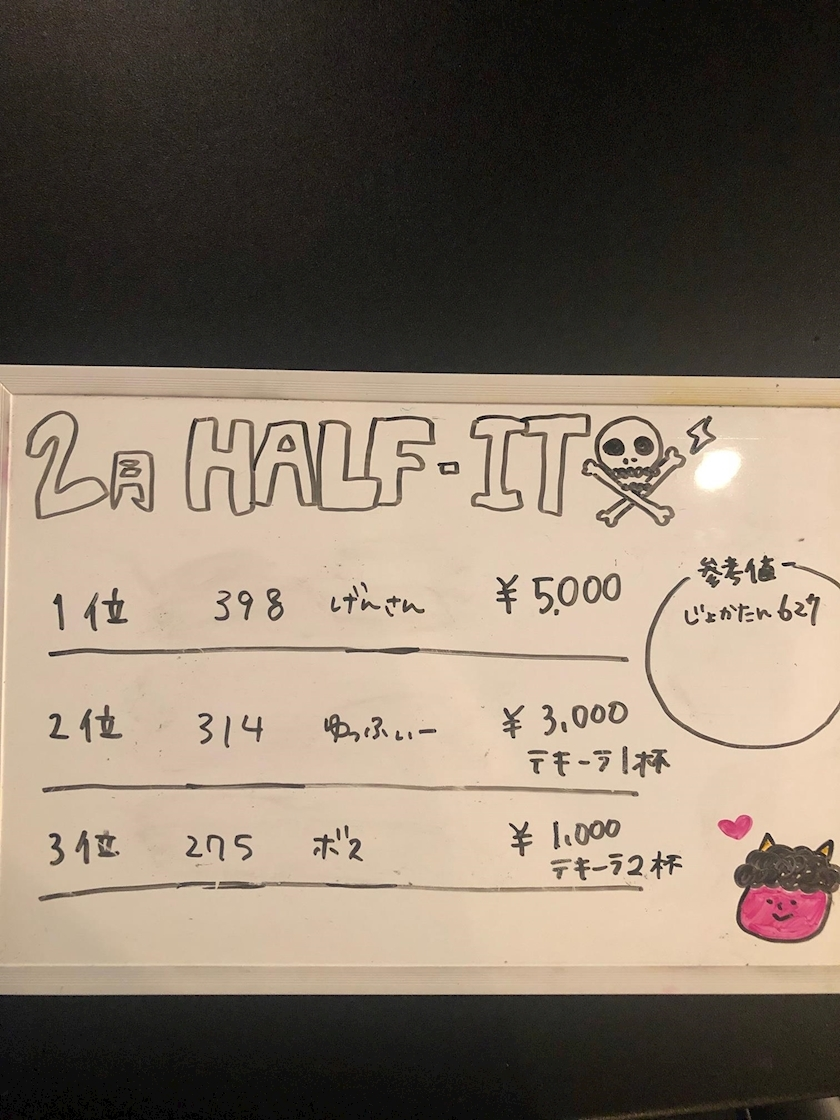 2月 HALF-IT
1位 398 げんさん ¥5,000
参考値
じょかたん 627
2位 314 ゆっふぃー ¥3,000
テキーラ1杯
3位 275 ボス ¥1,000
テキーラ2杯